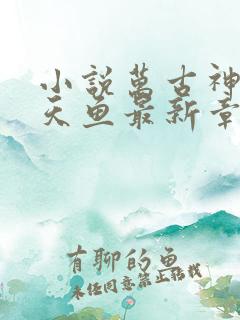 小説萬古神
天魚最新章
有聊的魚
未任同意禁止轉載